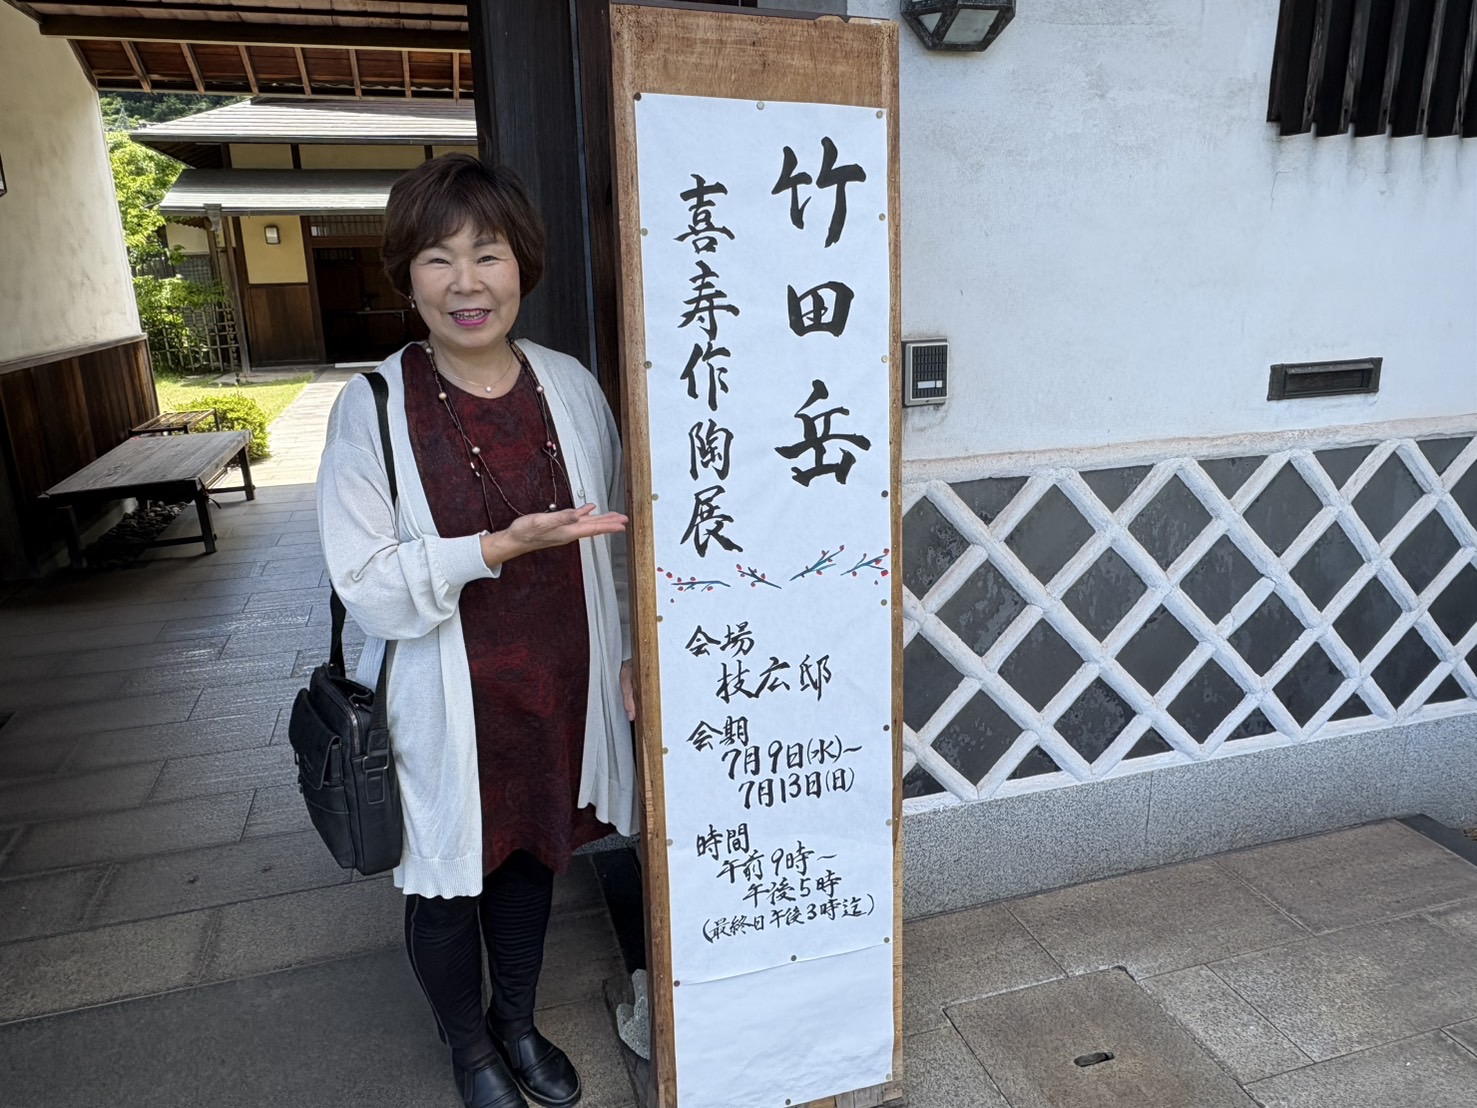 竹田岳
喜寿作陶展
会場
枝広邸
会期
7月9日(水)～
7月13日(日)
時間
午前9時～
午後5時
(最終日午後3時迄)